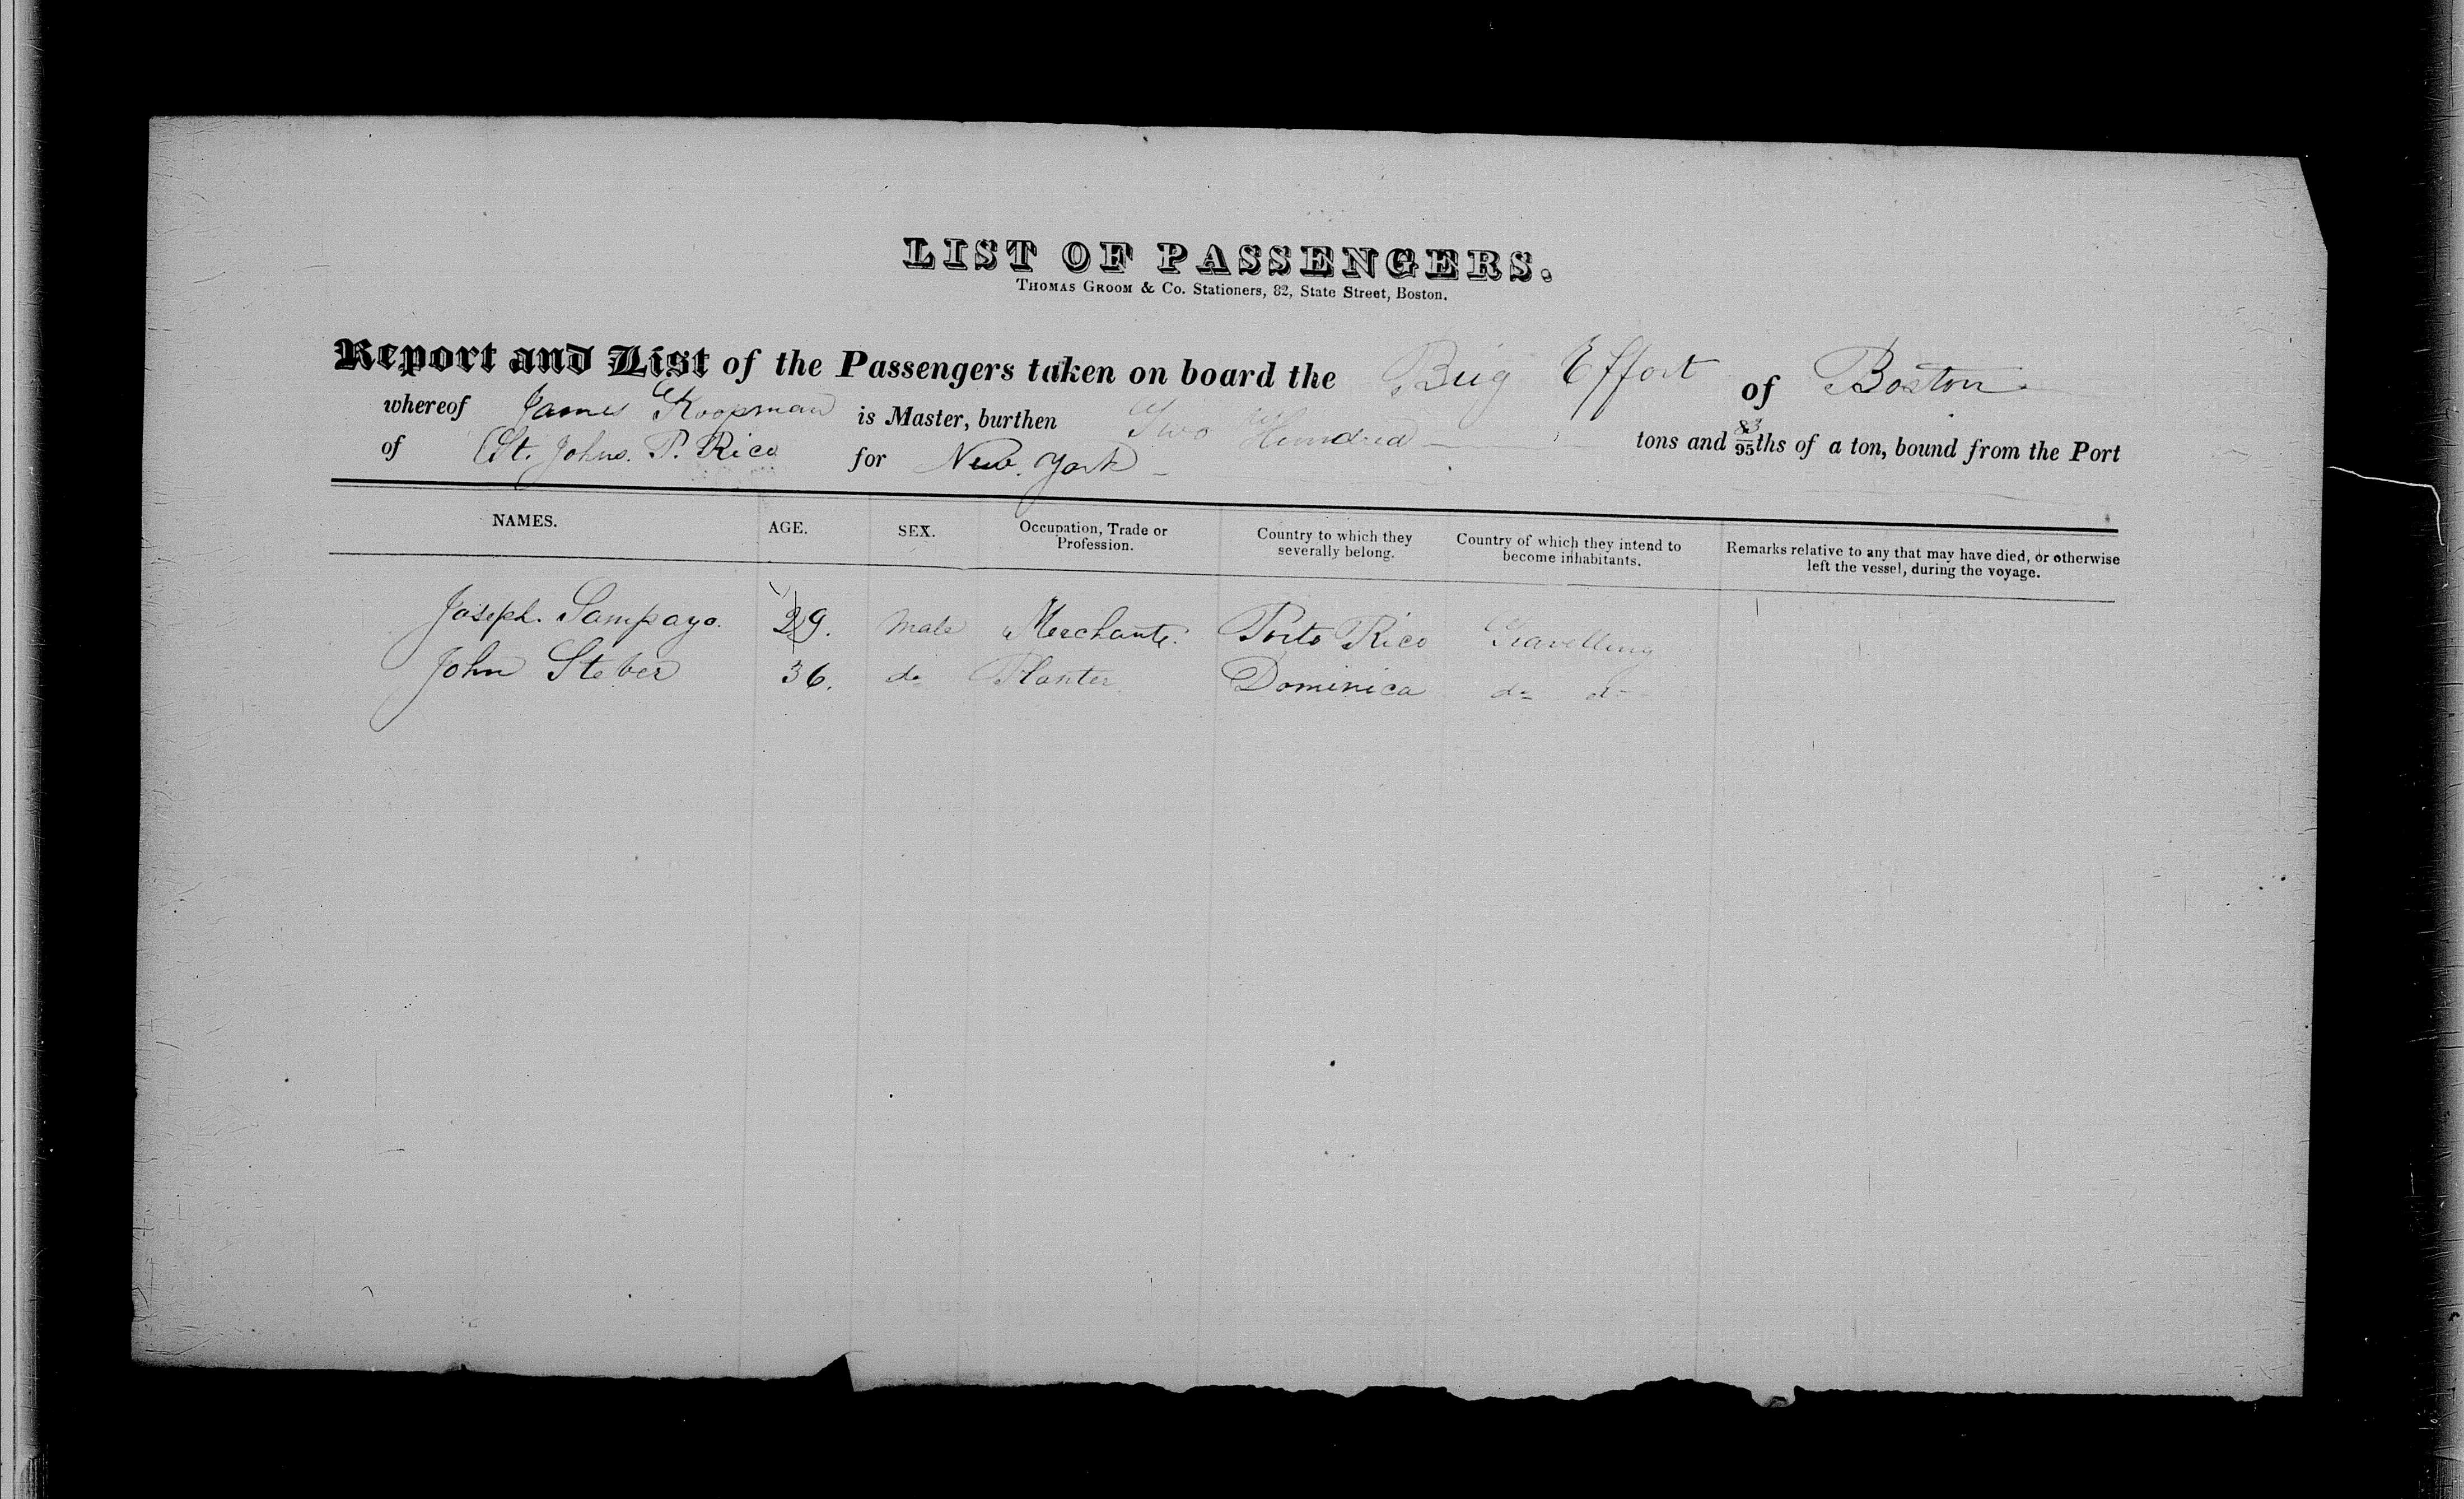 LIST OF PASSENGERS.
THOMAS GROOM & Co. Stationers, 82, State Street, Boston.
Report and List of the Passengers taken on board the Brig Effort of Boston
whereof James Koopman is Master, burthen Two Hundred tons and 83/95ths of a ton, bound from the Port
of St. Johns. P. Rico for New. York
NAMES. AGE. SEX. Occupation, Trade or Profession. Country to which they severally belong. Country of which they intend to become inhabitants. Remarks relative to any that may have died, or otherwise left the vessel, during the voyage.
Joseph. Sampayo. 29. Male Merchante. Porto Rico Travelling
John Steber 36. do Planter Dominica do do